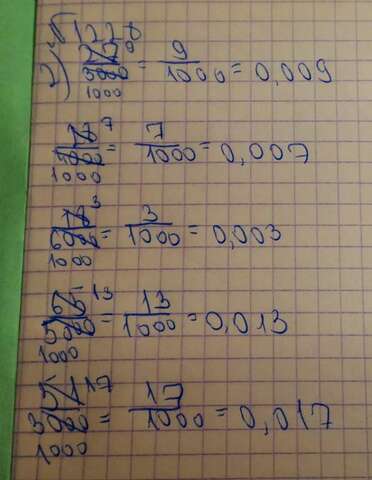 1228
2) 9
= 9/1000 = 0,009
1000
7
= 7/1000 = 0,007
1000
18 3
6000 = 3/1000 = 0,003
1000
65 13
5000 = 13/1000 = 0,013
1000
51 17
3000 = 17/1000 = 0,017
1000